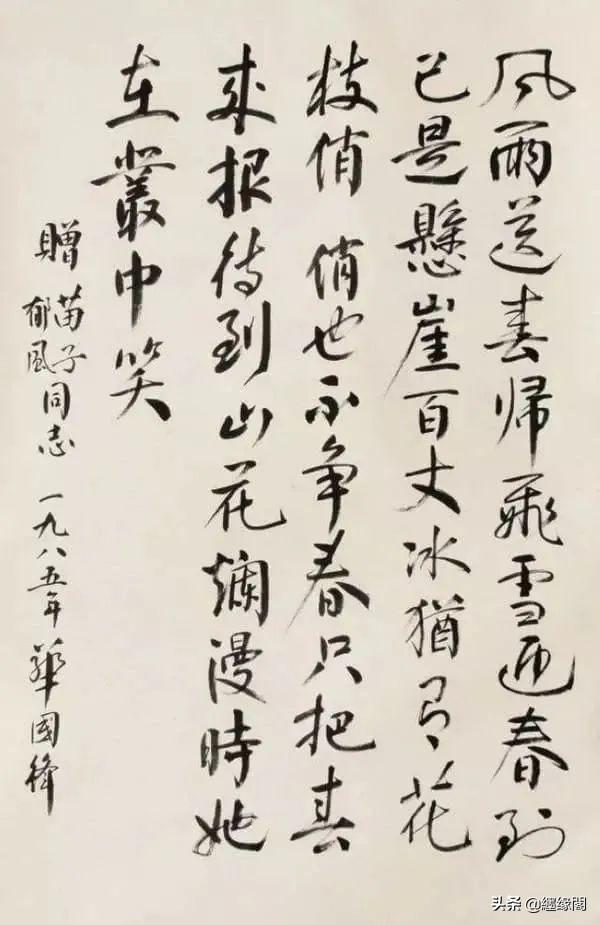 风雨送春归飛雪迎春到
已是懸崖百丈冰猶有花
枝俏 俏也不争春只把春
來报待到山花爛漫時她
在叢中笑
贈 苗子 郁风 同志 一九八五年 華國鋒
头条 @纏缘阁